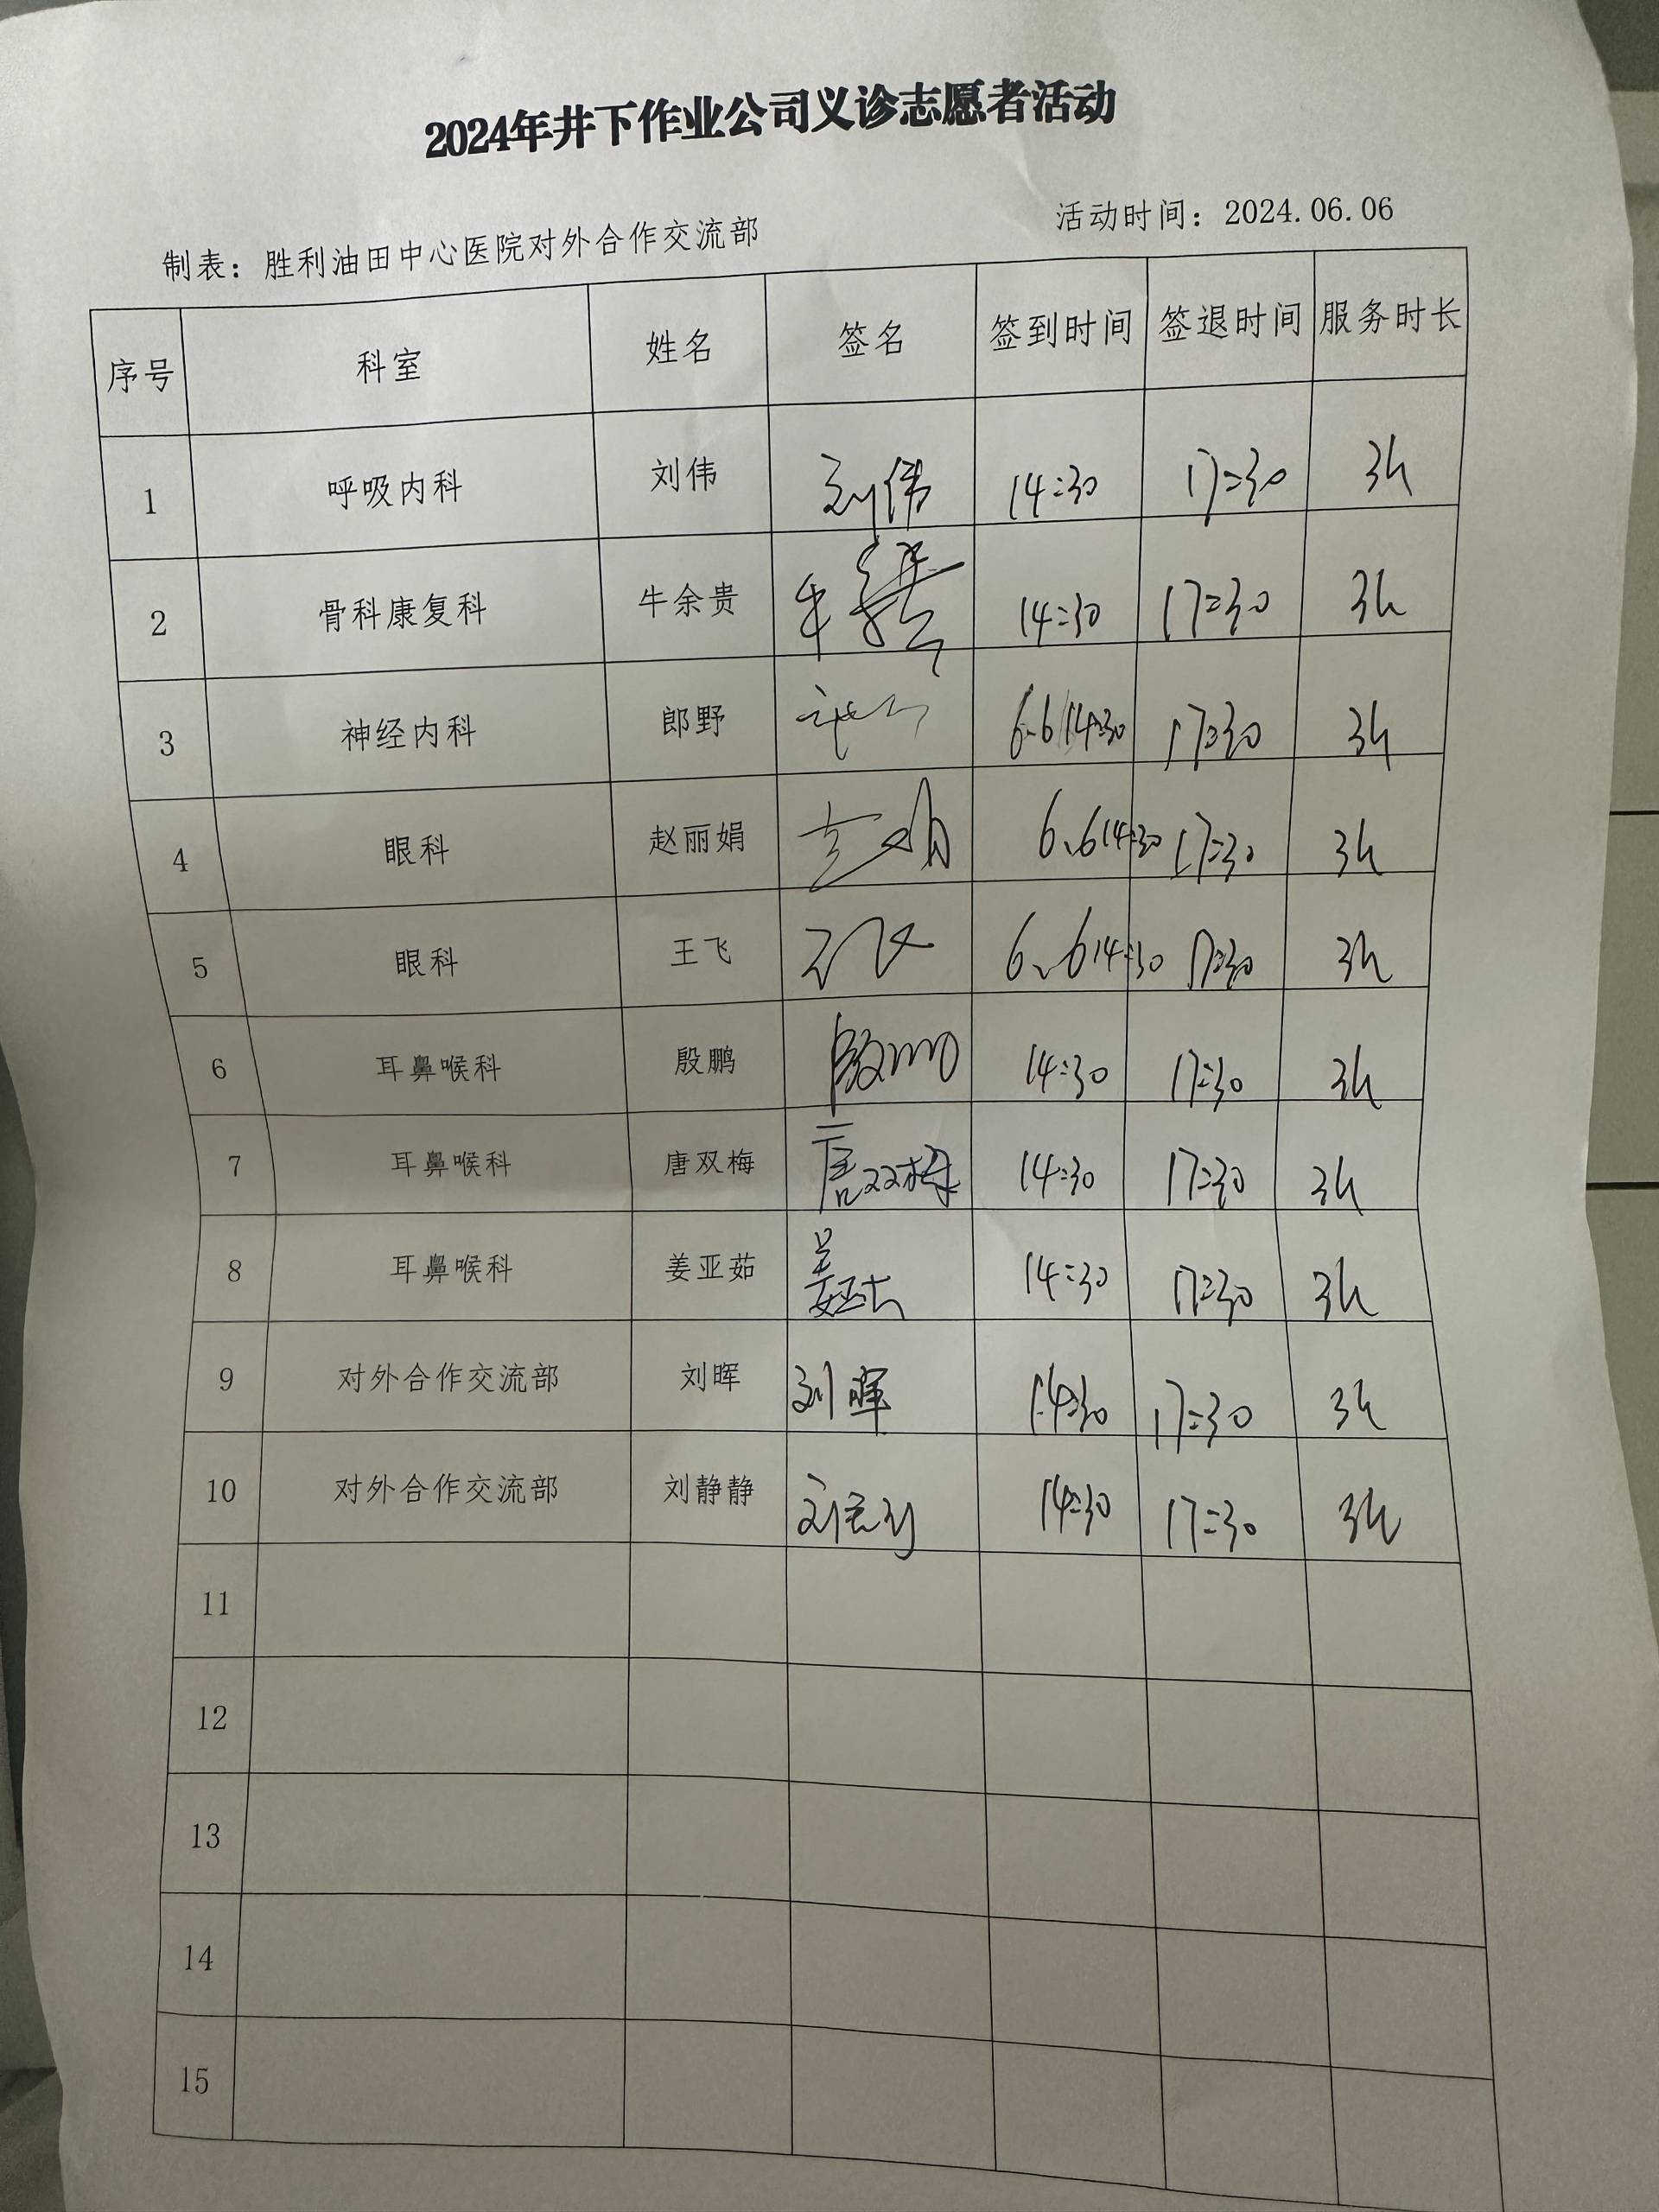 2024年井下作业公司义诊志愿者活动
制表：胜利油田中心医院对外合作交流部 活动时间：2024.06.06
序号 科室 姓名 签名 签到时间 签退时间 服务时长
1 呼吸内科 刘伟 刘伟 14:30 17:30 3h
2 骨科康复科 牛余贵 牛余贵 14:30 17:30 3h
3 神经内科 郎野 6.6 14:30 17:30 3h
4 眼科 赵丽娟 6.6 14:30 17:30 3h
5 眼科 王飞 王飞 6.6 14:30 17:30 3h
6 耳鼻喉科 殷鹏 殷鹏 14:30 17:30 3h
7 耳鼻喉科 唐双梅 唐双梅 14:30 17:30 3h
8 耳鼻喉科 姜亚茹 姜亚茹 14:30 17:30 3h
9 对外合作交流部 刘晖 刘晖 14:30 17:30 3h
10 对外合作交流部 刘静静 14:30 17:30 3h
11
12
13
14
15